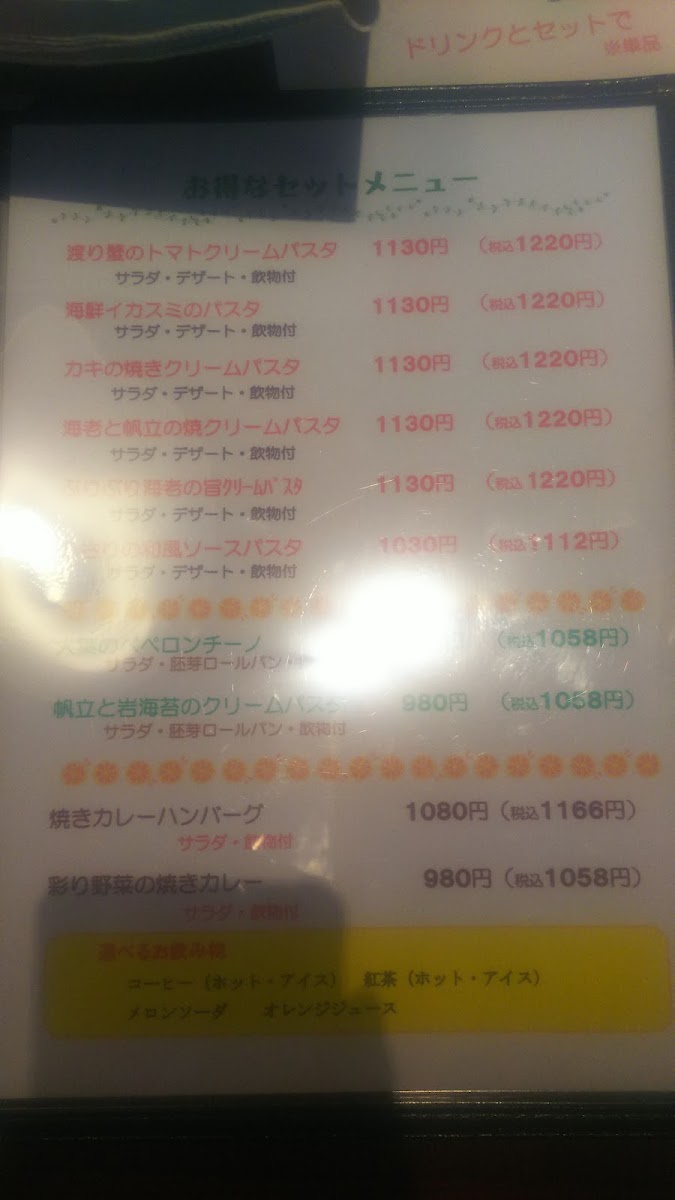 ドリンクとセットで
※単品
お得なセットメニュー
渡り蟹のトマトクリームパスタ 1130円 (税込1220円)
サラダ・デザート・飲物付
海鮮イカスミのパスタ 1130円 (税込1220円)
サラダ・デザート・飲物付
カキの焼きクリームパスタ 1130円 (税込1220円)
サラダ・デザート・飲物付
海老と帆立の焼クリームパスタ 1130円 (税込1220円)
サラダ・デザート・飲物付
ぷりぷり海老の旨ｸﾘｰﾑﾊﾟｽﾀ 1130円 (税込1220円)
サラダ・デザート・飲物付
の和風ソースパスタ 1030円 (税込1112円)
サラダ・デザート・飲物付
のペペロンチーノ (税込1058円)
サラダ・胚芽ロールパン・
帆立と岩海苔のクリームパスタ 980円 (税込1058円)
サラダ・胚芽ロールパン・飲物付
焼きカレーハンバーグ 1080円 (税込1166円)
サラダ・飲物付
彩り野菜の焼きカレー 980円 (税込1058円)
サラダ・飲物付
選べるお飲み物
コーヒー (ホット・アイス) 紅茶 (ホット・アイス)
メロンソーダ オレンジジュース